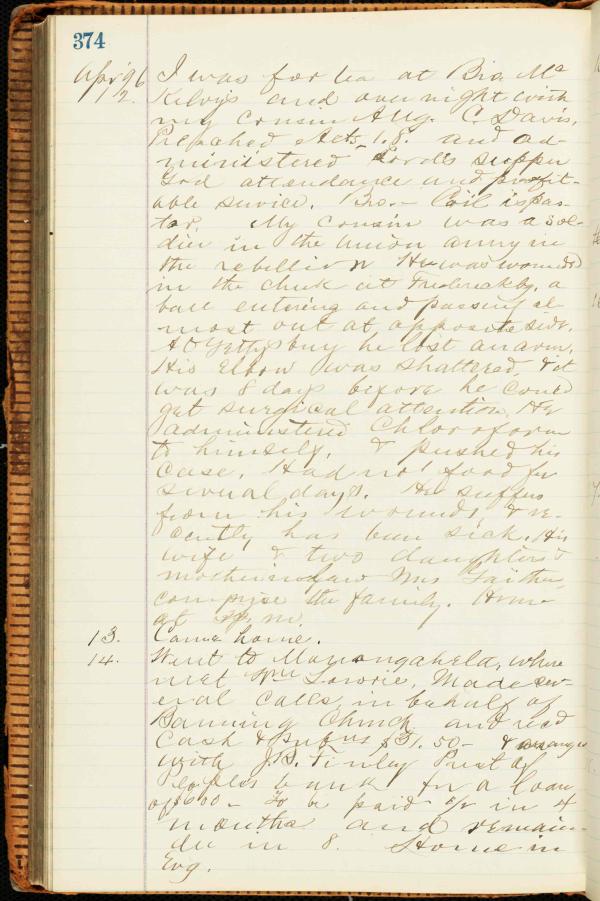 374
Apr '96 I was for tea at Bro. Mc
12. Kelvy's and over night with
my cousin Aug. C. Davis.
Preached Acts 1.8. and ad-
ministered Lord's supper
Good attendance and profit-
able service. Bro. - Coil is pas-
tor. My cousin was a sol-
dier in the Union army in
the rebellion He was wounded
in the cheek at Fredericksbg, a
ball entering and passing al
most out at opposite side.
At Gettysburg he lost an arm.
His Elbow was shattered, & it
was 8 days before he could
get surgical attention. He
administered Chloroform
to himself, & pushed his
case. Had no food for
several days. He suffers
from his wounds, & re-
cently has been sick. His
wife & two daughters &
mother in law Mrs
comprise the family. Home
at m.
13. Came home.
14. Went to Monongahela, where
met Wm Lowrie. Made sev-
eral calls in behalf of
Banning Church and recd
Cash & $51.50 - & arranged
with J.B. Finley Prest of
Peoples bank for a loan
of $600 - To be paid in 4
months and remain-
der in 8. Home in
Evg.